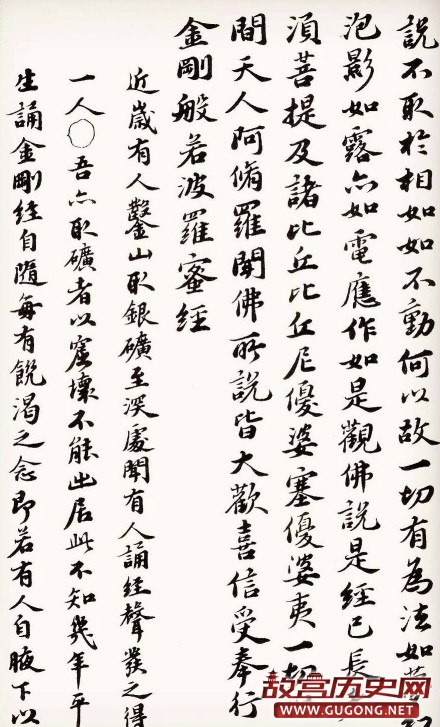 說不取於相如如不動何以故一切有為法如夢
泡影如露亦如電應作如是觀佛說是經已長
須菩提及諸比丘比丘尼優婆塞優婆夷一切
間天人阿脩羅聞佛所說皆大歡喜信受奉行
金剛般若波羅蜜經
近歲有人鑿山取銀礦至深處聞有人誦經聲發之得
一人○吾亦取礦者以窟壞不能出居此不知幾年平
生誦金剛經自隨每有飢渴之念即若有人自腋下以
故宫历史网
WWW.GUGONG.NET